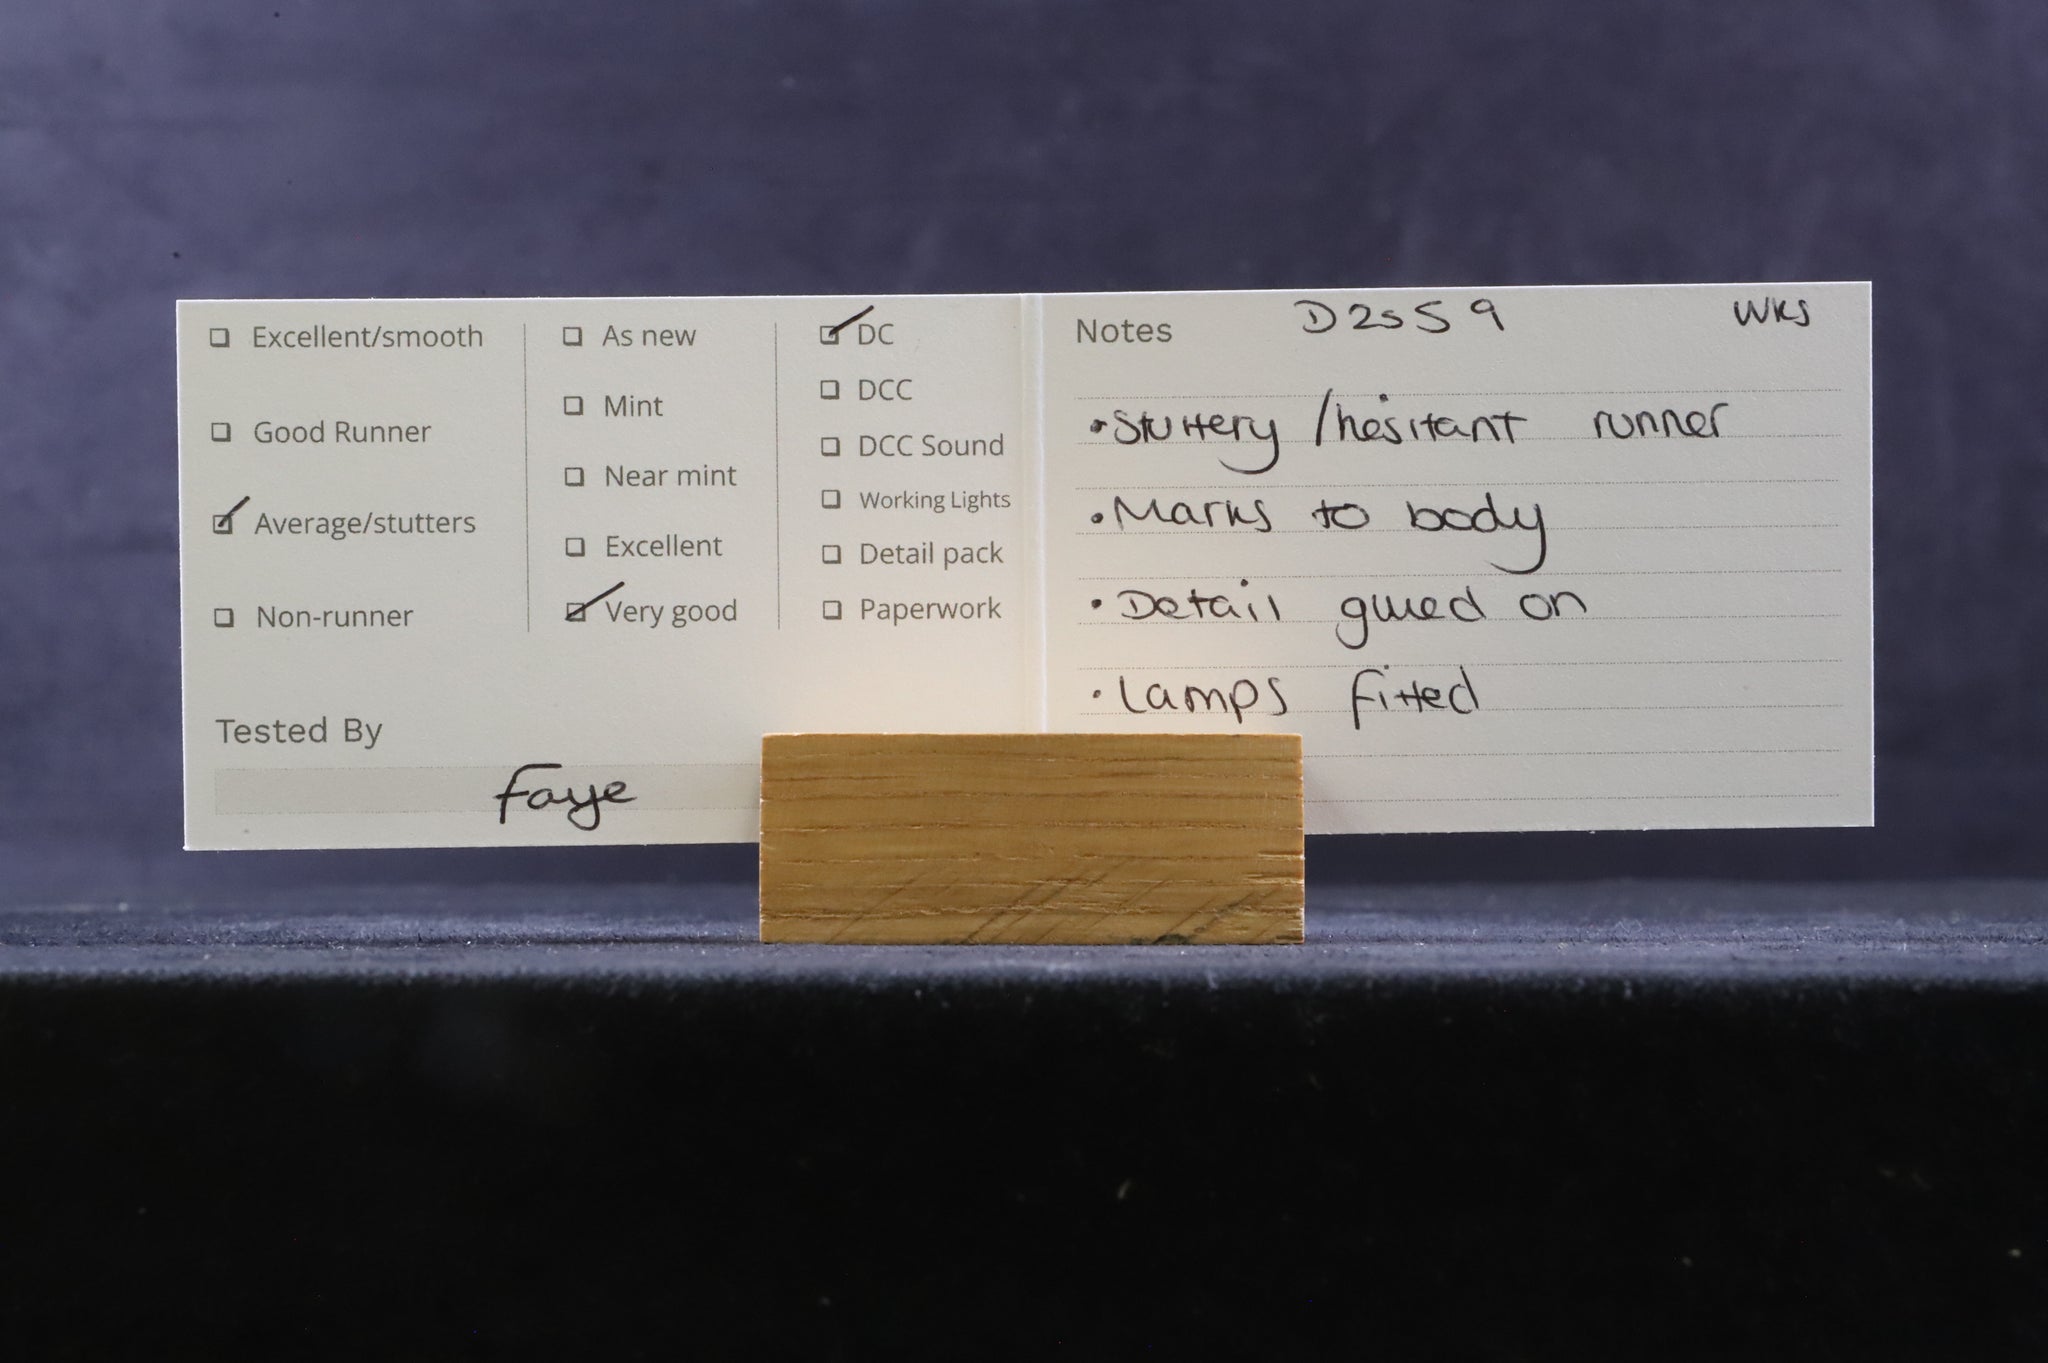 Excellent/smooth
Good Runner
Average/stutters
Non-runner
As new
Mint
Near mint
Excellent
Very good
DC
DCC
DCC Sound
Working Lights
Detail pack
Paperwork
Tested By
Faye
Notes D2559 WKS
• Stuttery/hesitant runner
• Marks to body
• Detail glued on
• Lamps fitted